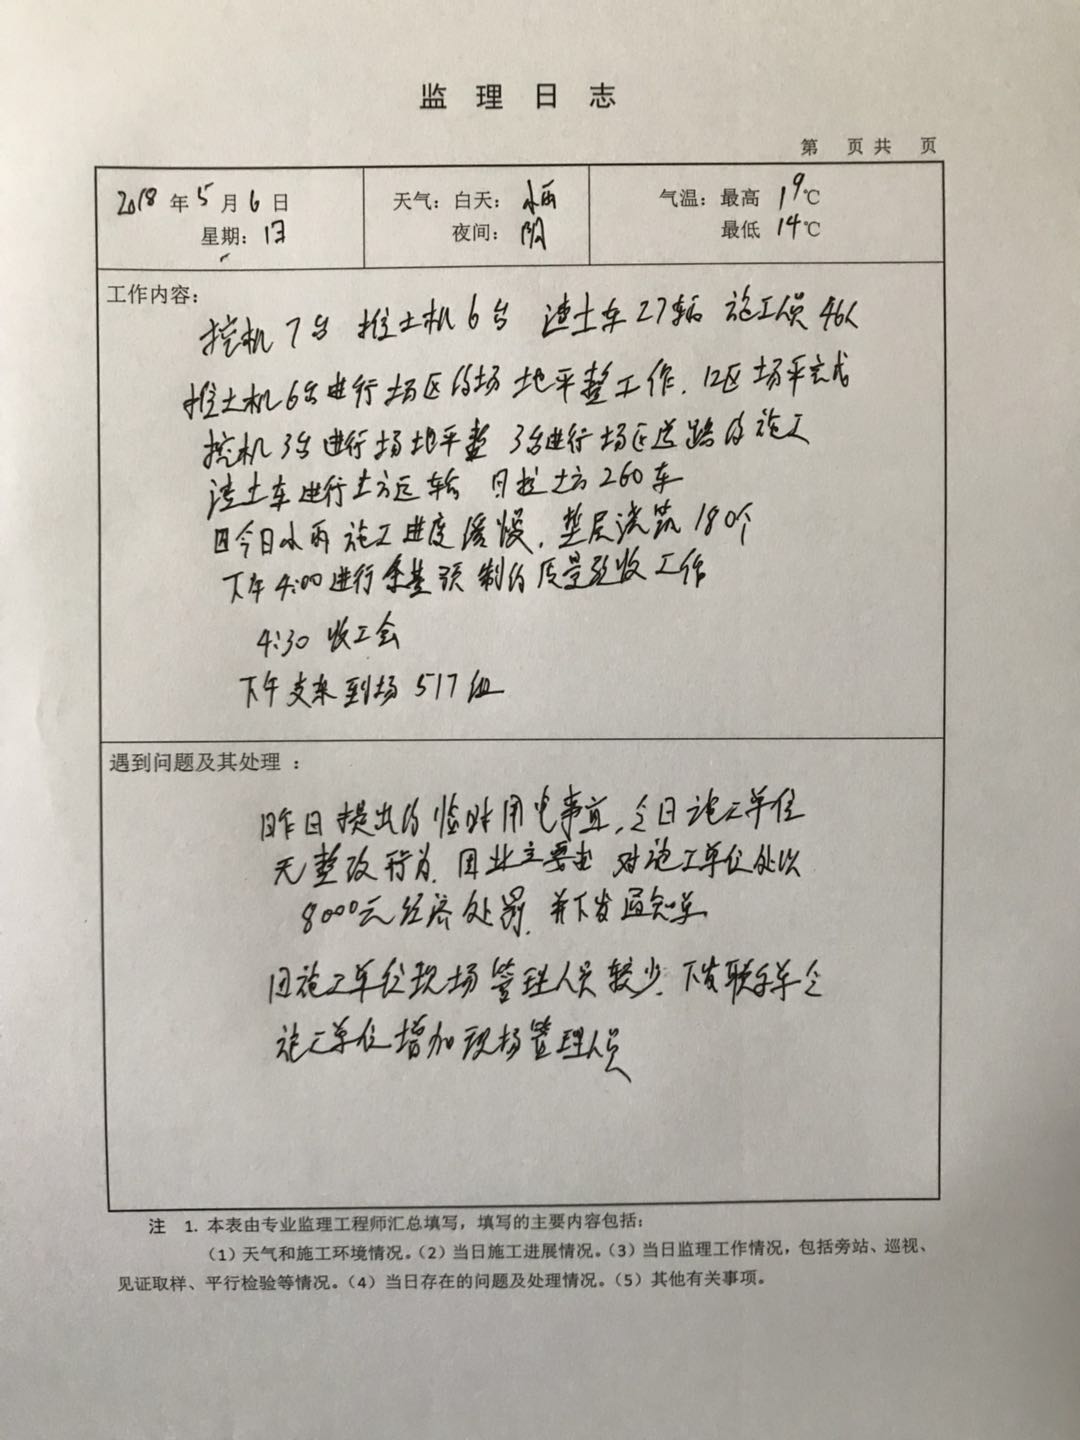 监理日志
第 页 共 页
2018 年 5 月 6 日
星期：日
天气：白天：小雨
夜间：阴
气温：最高 19℃
最低 14℃
工作内容：
挖机7台 推土机6台 渣土车27辆 施工员46人
推土机6台进行场区的场地平整工作，12区场平完成
挖机3台进行场地平整 3台进行场区道路的施工
渣土车进行土方运输 日挖土方260车
因今日小雨 施工进度缓慢，垫层浇筑180个
下午4:00进行条基预制的质量验收工作
4:30 收工会
下午支架到场 517组
遇到问题及其处理 ：
昨日提出的临时用电事宜，今日施工单位
无整改行为，因业主要求 对施工单位处以
8000元经济处罚，并下发通知单
因施工单位现场管理人员较少，下发联系单令
施工单位增加现场管理人员
注 1. 本表由专业监理工程师汇总填写，填写的主要内容包括：
（1）天气和施工环境情况。（2）当日施工进展情况。（3）当日监理工作情况，包括旁站、巡视、
见证取样、平行检验等情况。（4）当日存在的问题及处理情况。（5）其他有关事项。